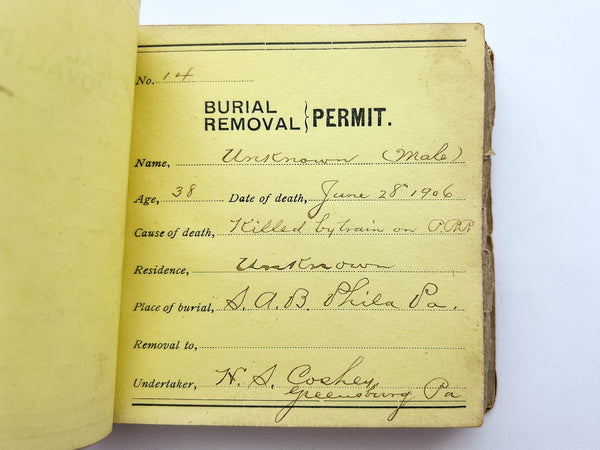 No. 14
BURIAL
REMOVAL } PERMIT.
Name, Unknown (Male)
Age, 38 Date of death, June 28th 1906
Cause of death, Killed by train on P.R.R
Residence, Unknown
Place of burial, S. A. B. Phila Pa.
Removal to,
Undertaker, H. S. Coshey
Greensburg Pa